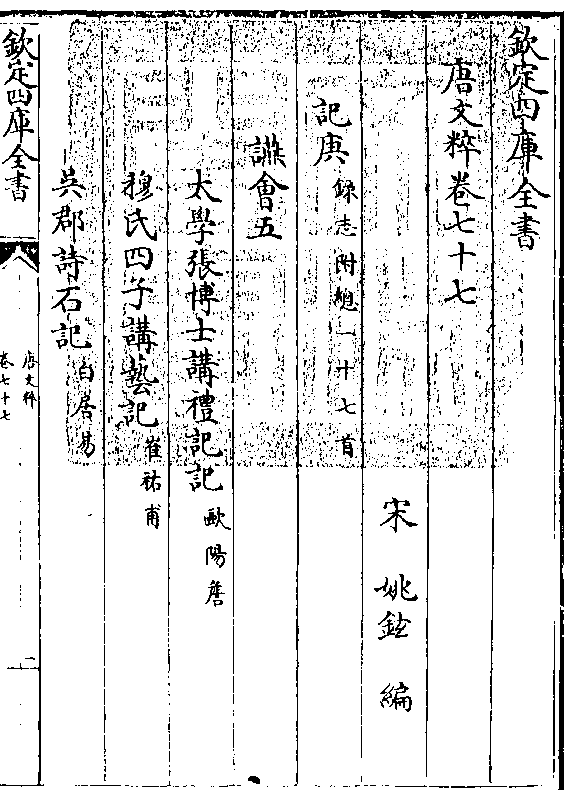 欽定四庫全書
唐文粹卷七十七
宋 姚鉉 編
記庚 錄志附總一十七首
讌會五
太學張博士講禮記記 歐陽詹
穆氏四子講藝記 崔祐甫
吳郡詩石記 白居易
欽定四庫全書
唐文粹
卷七十七
一